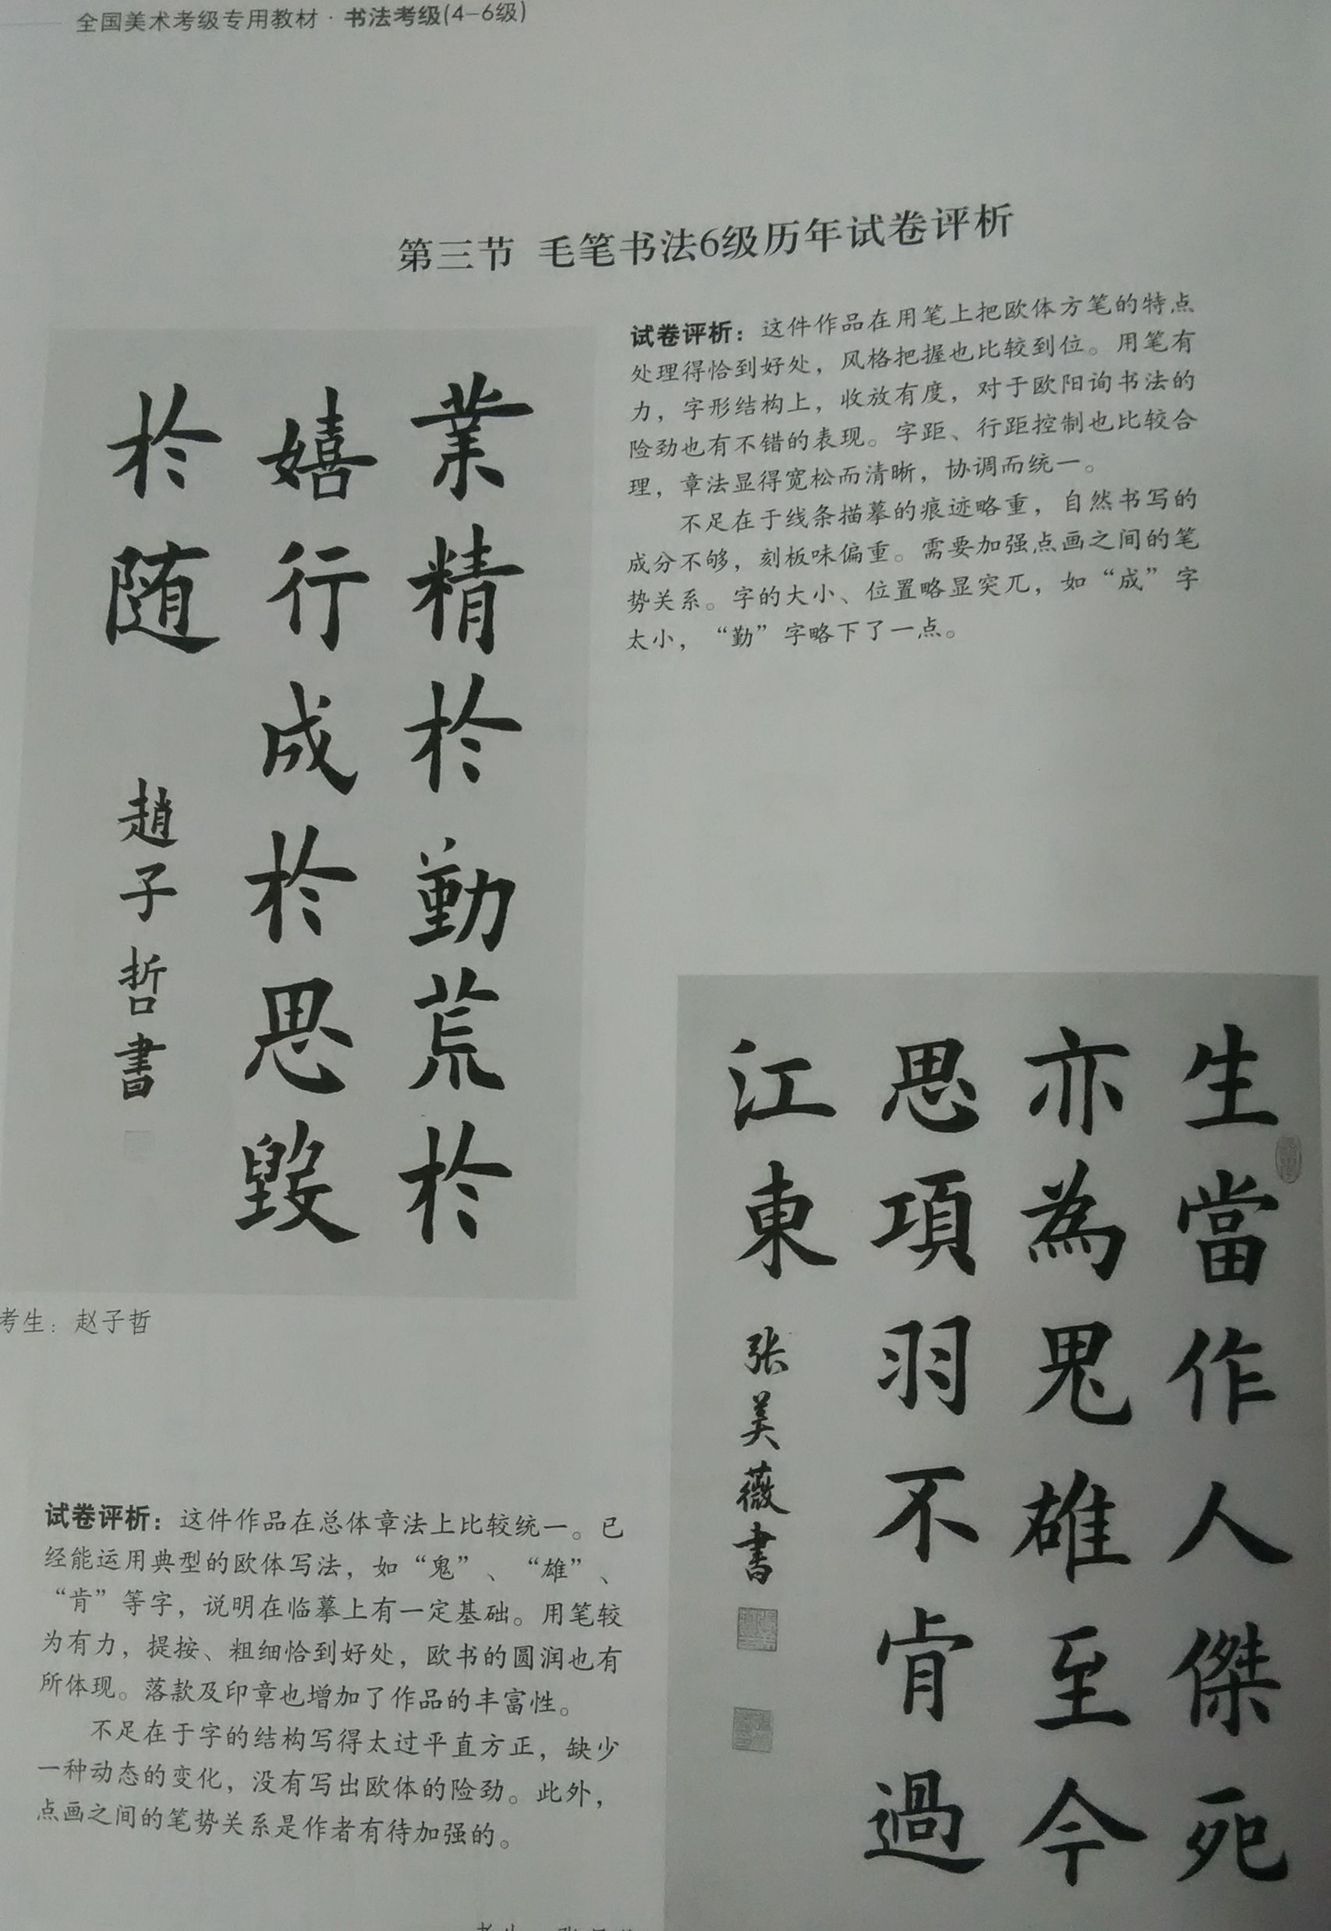 全国美术考级专用教材·书法考级(4-6级)
第三节 毛笔书法6级历年试卷评析
業精於勤荒於
嬉行成於思毁
於随
趙子哲書
考生：赵子哲
试卷评析：这件作品在用笔上把欧体方笔的特点
处理得恰到好处，风格把握也比较到位。用笔有
力，字形结构上，收放有度，对于欧阳询书法的
险劲也有不错的表现。字距、行距控制也比较合
理，章法显得宽松而清晰，协调而统一。
不足在于线条描摹的痕迹略重，自然书写的
成分不够，刻板味偏重。需要加强点画之间的笔
势关系。字的大小、位置略显突兀，如“成”字
太小，“勤”字略下了一点。
生當作人傑死
亦為鬼雄至今
思項羽不肯過
江東
张美薇書
试卷评析：这件作品在总体章法上比较统一。已
经能运用典型的欧体写法，如“鬼”、“雄”、
“肯”等字，说明在临摹上有一定基础。用笔较
为有力，提按、粗细恰到好处，欧书的圆润也有
所体现。落款及印章也增加了作品的丰富性。
不足在于字的结构写得太过平直方正，缺少
一种动态的变化，没有写出欧体的险劲。此外，
点画之间的笔势关系是作者有待加强的。